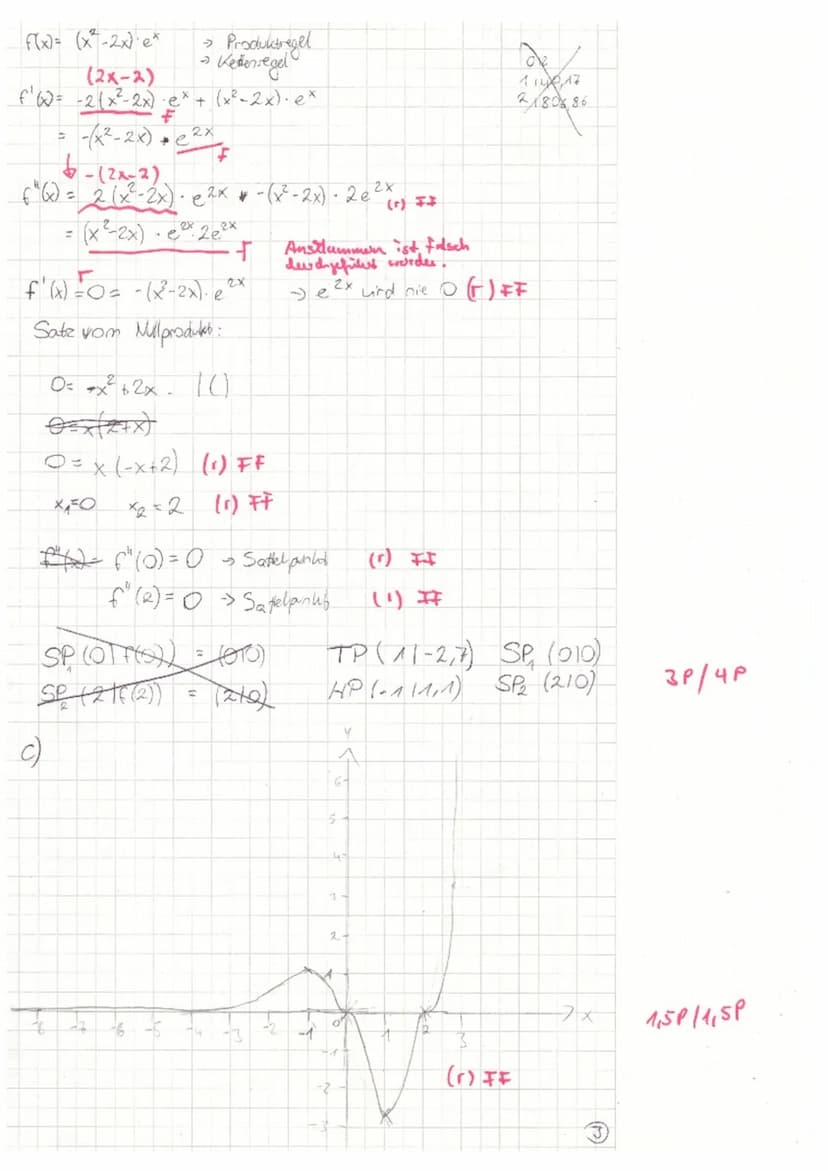 f(x)= (x²-2x)·eˣ → Produktregel
→ Kettenregel
(2x-2)
f'(x)= -2(x²-2x)·eˣ + (x²-2x)·eˣ
f
= -(x²-2x) · e²ˣ
f
↓ -(2x-2)
f''(x) = 2(x²-2x)·e²ˣ + -(x²-2x)·2e²ˣ (r) FF
= (x²-2x)·e²ˣ·2e²ˣ f
Ausklammern ist falsch
durchgeführt worden.
r
f'(x)=0= -(x²-2x)·e²ˣ → e²ˣ wird nie 0 (r) FF
Satz vom Nullprodukt:
0= -x²+2x. |()
0=x(2+x)
0= x(-x+2) (r) FF
x₁=0 x₂=2 (r) FF
f''(x)= f''(0)=0 → Sattelpunkt (r) FF
f''(2)=0 → Sattelpunkt (r) FF
SP₁(0|f(0)) = (0|0) TP(1|-2,7) SP₁(0|0)
SP₂(2|f(2)) = (2|0) HP(-1|1,1) SP₂(2|0)
3P/4P
c)
y
6
5
4
3
2
1
-8 -7 -6 -5 -4 -3 -2 -1 0 1 2 3 x
1,5P/1,5P
-1
-2
(r) FF
-3
3